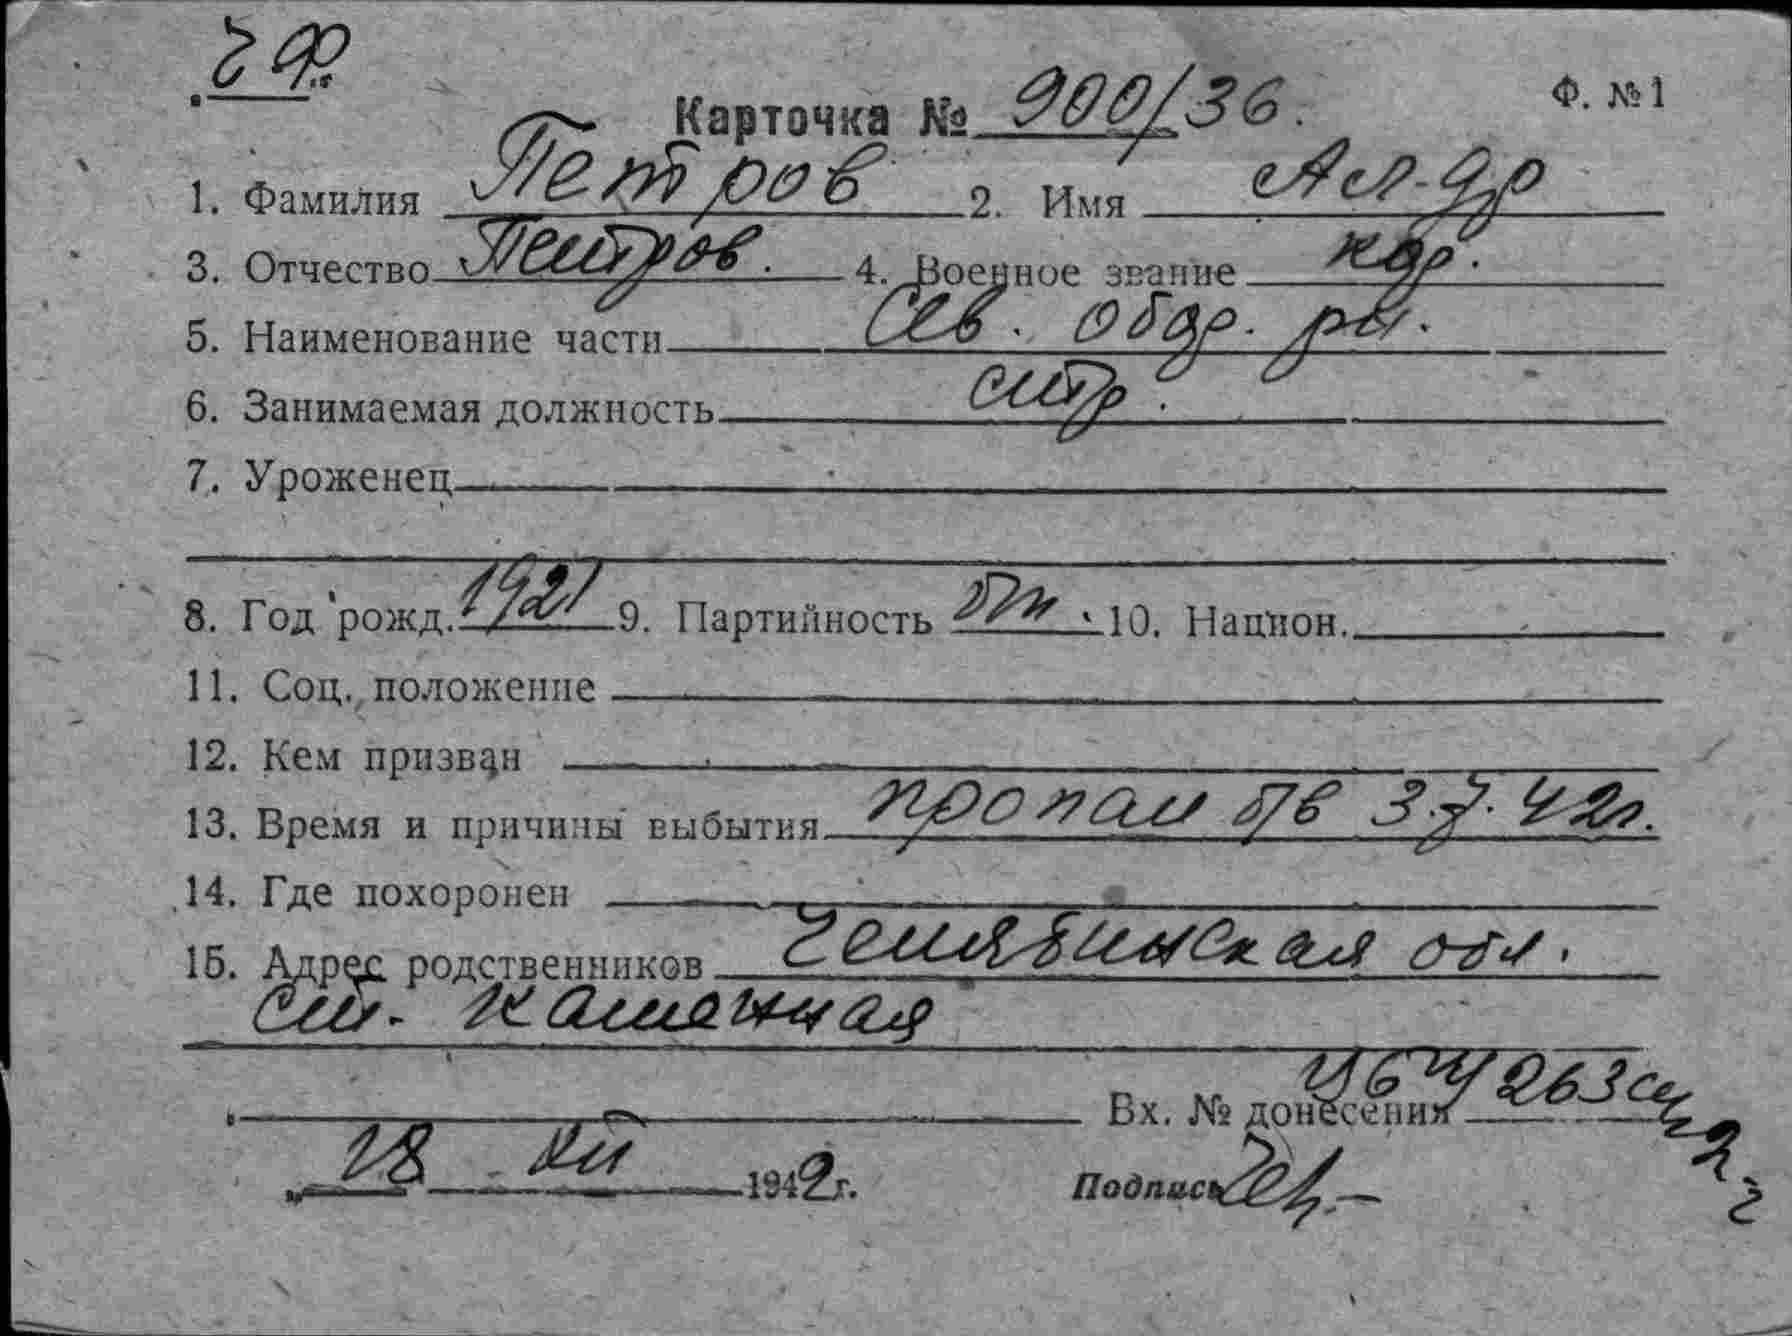 ЧФ.
Карточка № 900/36. Ф. №1
1. Фамилия Петров 2. Имя Ал-др
3. Отчество Петров. 4. Военное звание кр.
5. Наименование части Сев. обор. р-н.
6. Занимаемая должность стр.
7. Уроженец
8. Год рожд. 1921 9. Партийность б/п. 10. Национ.
11. Соц. положение
12. Кем призван
13. Время и причины выбытия пропал б/в 3.7.42г.
14. Где похоронен
15. Адрес родственников Челябинская обл.
ст. Каменная
Вх. № донесения 263
18 XII 1942г. Подпись